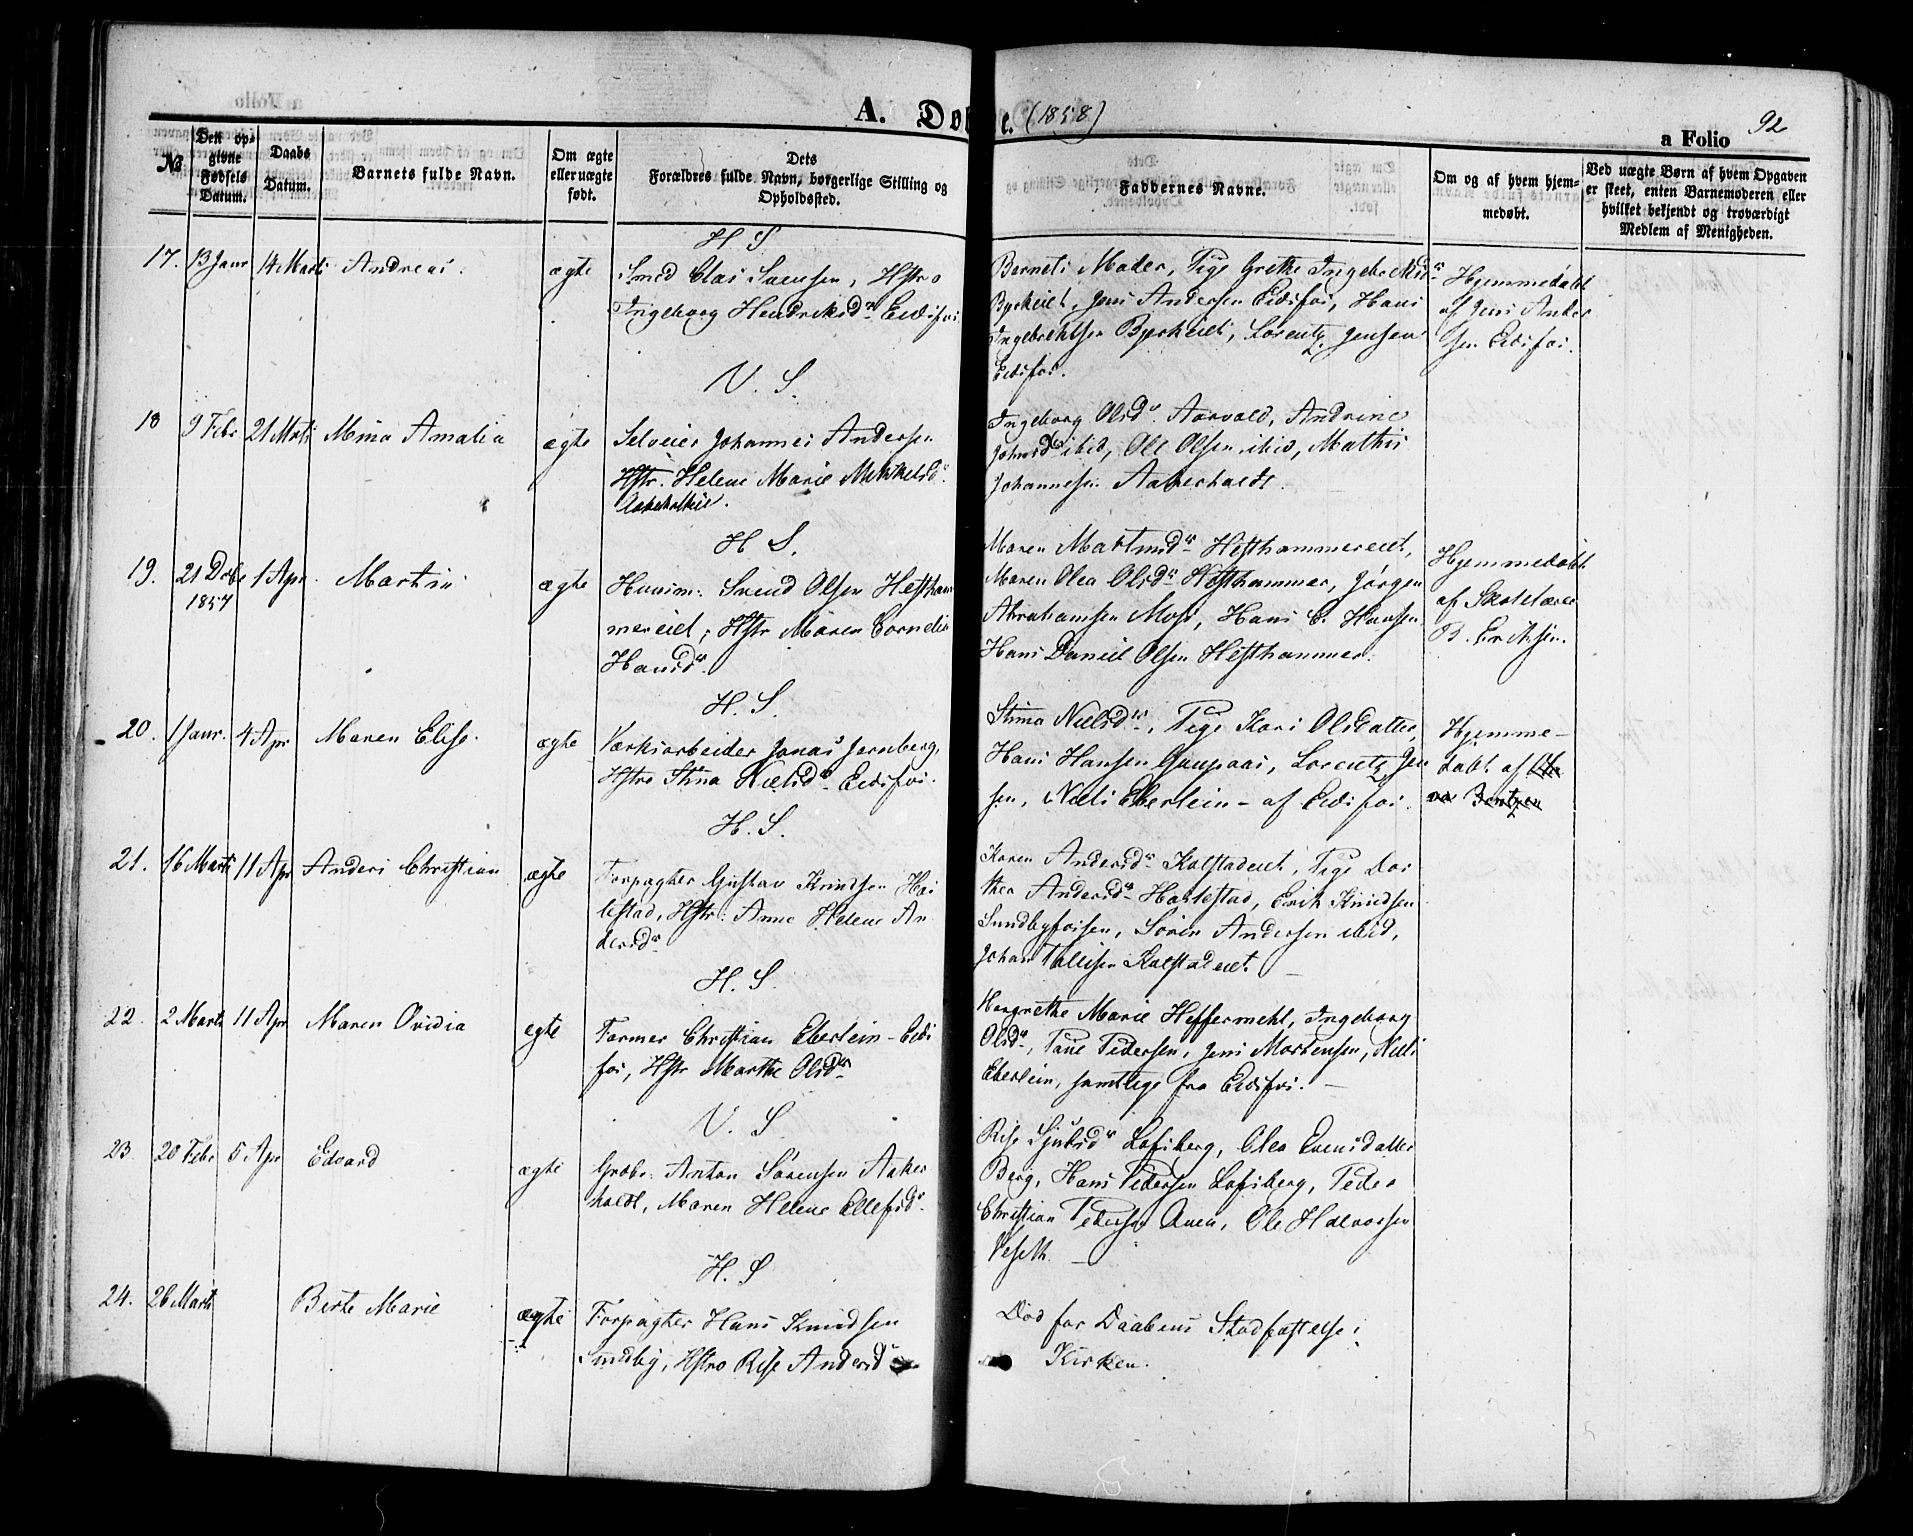 A. Døbte. (1858)
a Folio 92
No.
Den opgivne Fødsels Datum.
Daabs Datum.
Barnets fulde Navn.
Om ægte eller uægte født.
Dets Forældres fulde Navn, borgerlige Stilling og Opholdssted.
Faddernes Navne.
Om og af hvem hjemmedøbt.
Ved uægte Børn af hvem Opgaven er skeet, enten Barnemoderen eller hvilket bekjendt og troværdigt Medlem af Menigheden.
H S
17. 13 Janr 14 Marts Andreas. ægte
Smed Clas Svensen, Hstro
Ingeborg Hendriksdr Eidsfos
Barnets Moder, Pige Grethe
Jens Andersen Eidsfos, Hans
Lorentz Jensen
Eidsfos.
Hjemmedøbt
af Jens Ander
sen Eidsfos.
V. S.
18 9 Febr 21 Marts Mina Amalia ægte
Selveier Johannes Andersen
Hstr. Helene Marie Mikkelsdr
Ingeborg Olsdr Aarvold, Andrine
ibid, Ole Olsen ibid, Mathis
Johannesen Aakerholdt.
H S.
19. 21 Decbr 1 Apr. Martin ægte
1857
Huusm. Svend Olsen Hestham
mereiet, Hstr Maren Cornelia
Hansdr
Maren Hesthammereiet,
Maren Olea Olsdr Hesthammer, Jørgen
Abrahamsen Moss, Hans C. Hansen
Hans Daniel Olsen Hesthammer.
Hjemmedøbt
af Skolelærer
B. Eriksen.
H. S.
20. 1 Janr. 4 Apr Maren Elise. ægte
Værksarbeider Jonas Jernberg,
Hstro Stina Nielsdr Eidsfos.
Stina Nielsdr, Pige Kari Olsdatter,
Hans Hansen Gaupaas, Lorentz Jen
sen, Niels Eberlein - af Eidsfos.
Hjemme-
døbt af
Bentzen
H. S.
21. 16 Marts 11 Apr Anders Christian ægte
Forpagter Gustav Knudsen Ha
lestad, Hstr: Anne Helene An
dersdr
Karen Andersdr Kolstadeiet, Pige Dor
thea Andersdr Erik Knudsen
Sundbyfossen, Søren Andersen ibid,
Johan Kolstadeiet
H. S.
22. 2 Marts 11 Apr Maren Ovidia ægte
Former Christian Eberlein - Eids
fos, Hstr Marthe Olsdr
Margrethe Marie Heffermehl, Ingeborg
Olsdr, Pedersen, Jens Mortensen, Niels
Eberlein, samtlige fra Eidsfos. -
V. S
23 20 Febr 5 Apr Edvard ægte
Grabr. Anton Sørensen Aaker
holdt, Maren Helene Ellefsdr
Lofsberg, Olea Evensdatter
Berg, Hans Pedersen Lofsberg, Peder
Christian Pedersen Auen, Ole Halvorsen
Veseth -
H. S
24. 26 Marts Berte Marie ægte
Forpagter Hans Knudsen
Sundby, Hstro Andersdr
Død før Daabens Stadfæstelse i
Kirken.